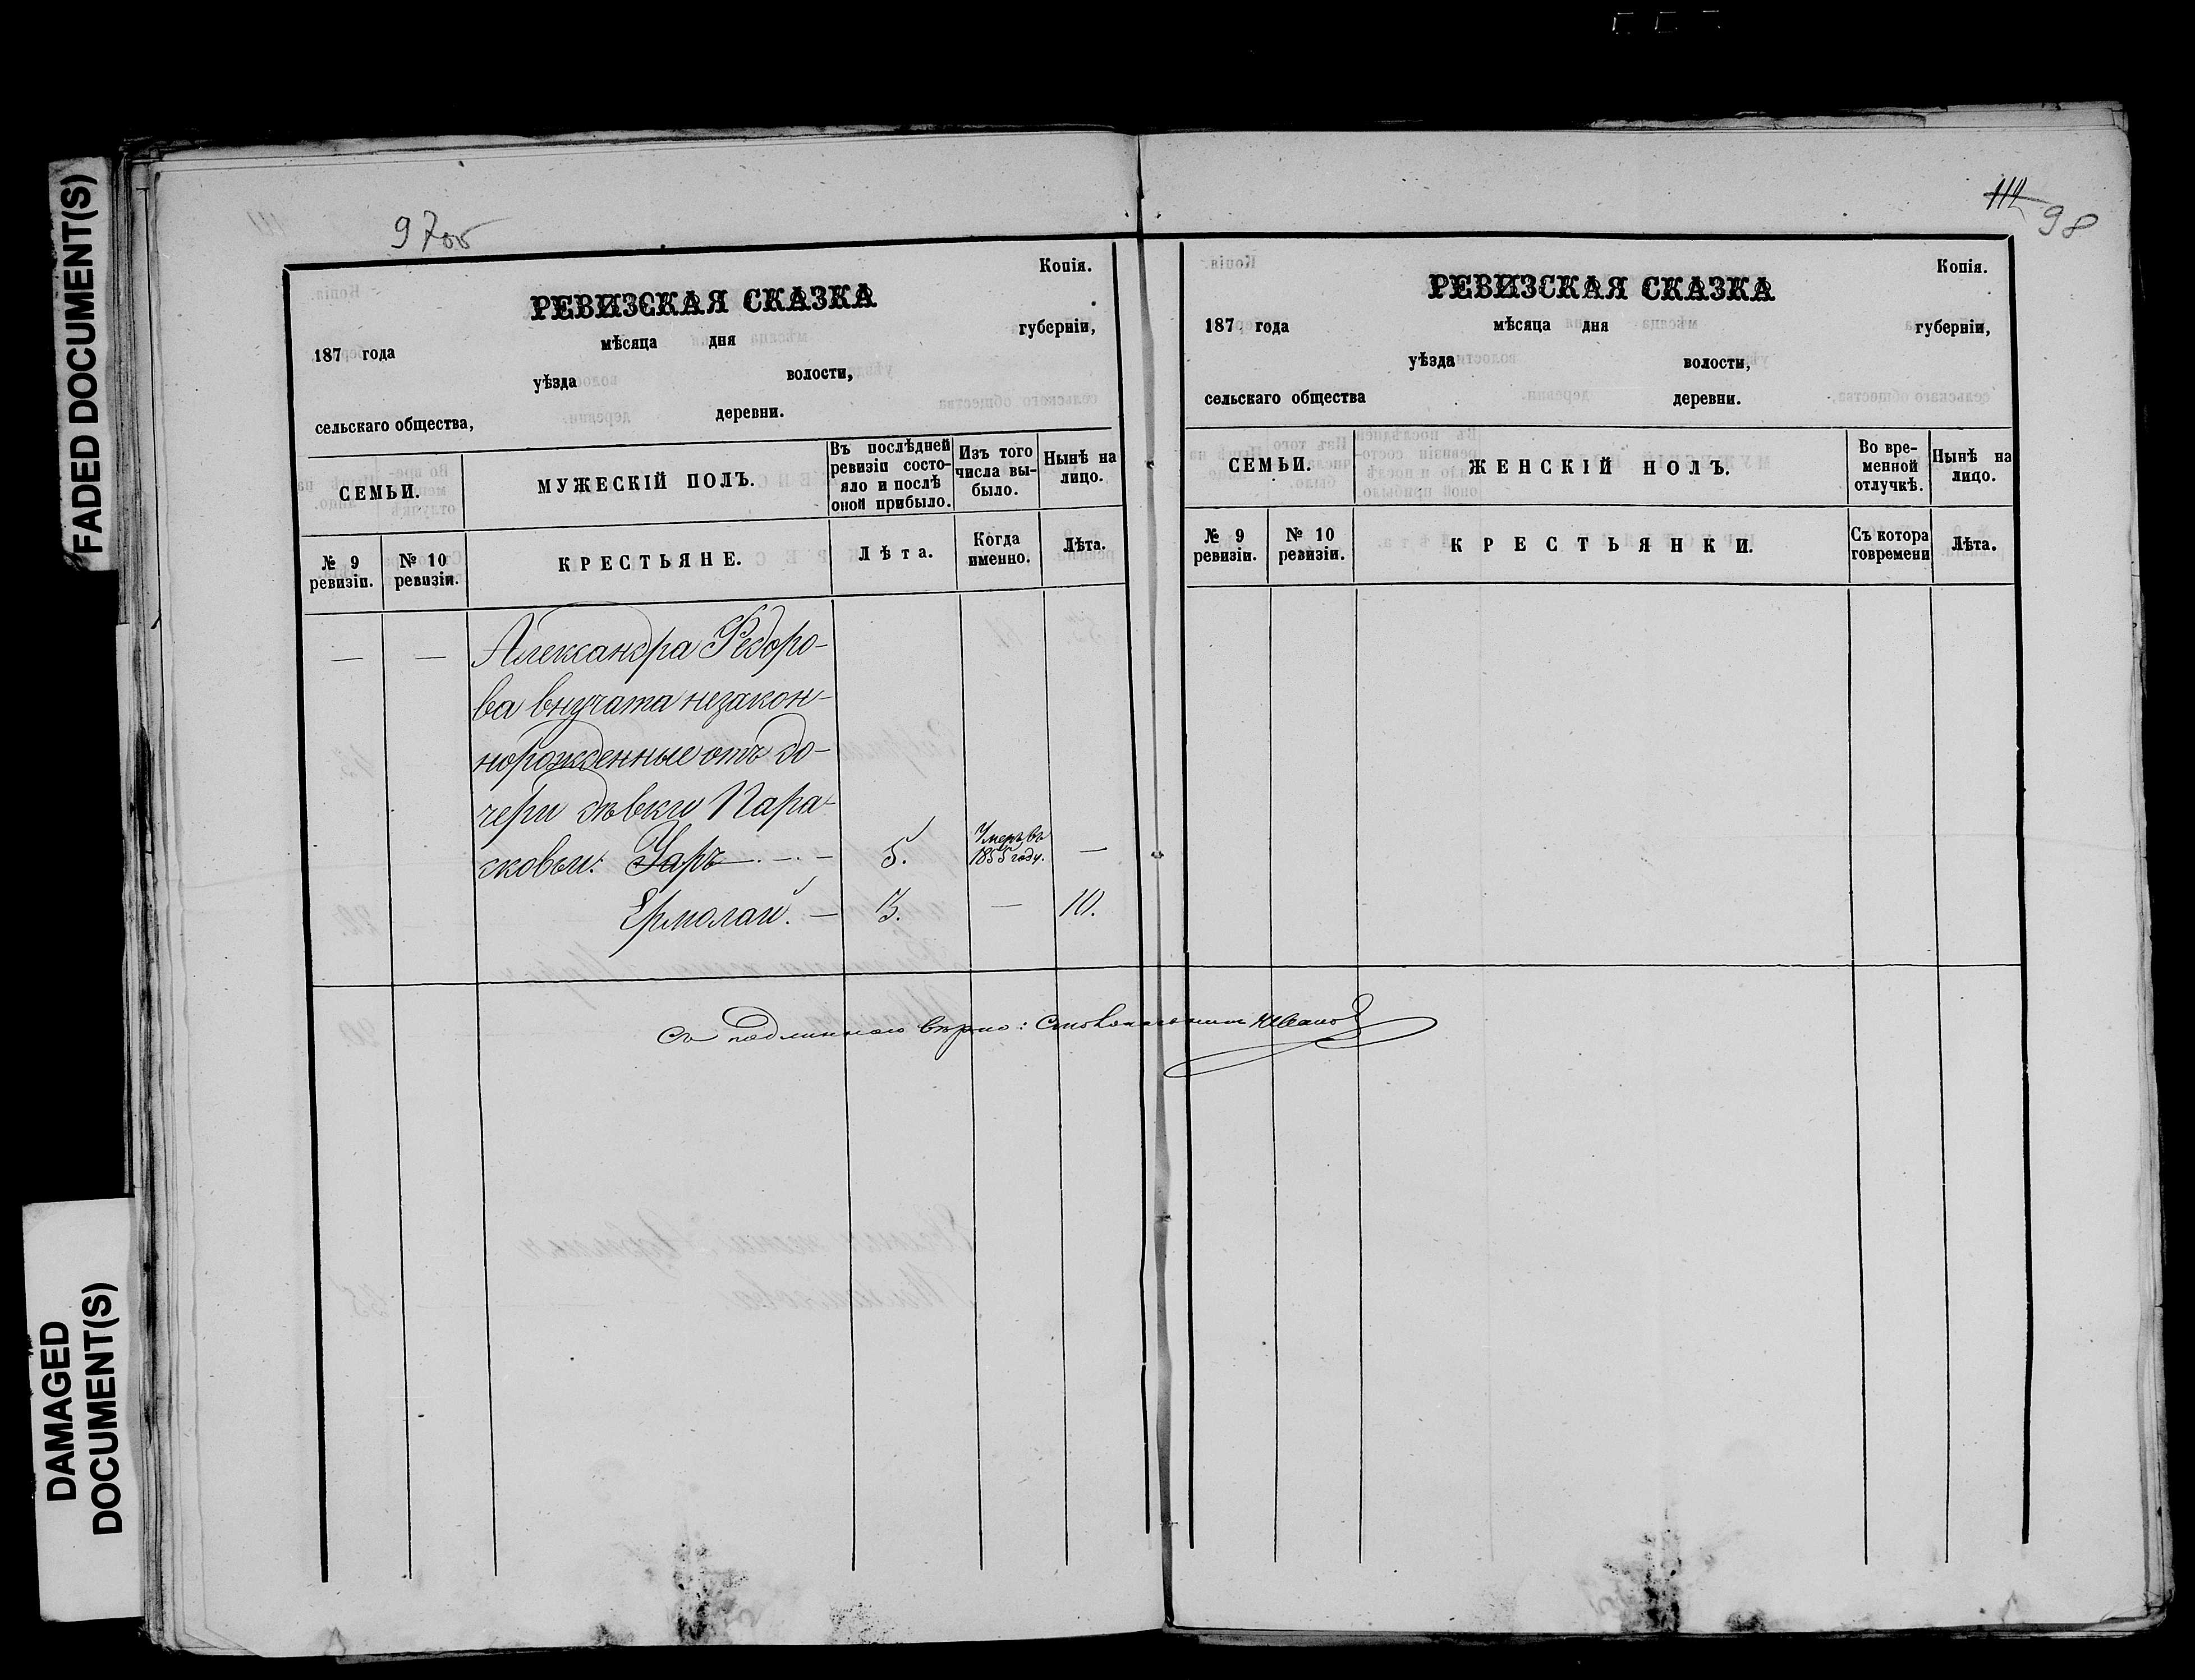 FADED DOCUMENT(S)
DAMAGED
DOCUMENT(S)
97об
Копія.
РЕВИЗСКАЯ СКАЗКА
187 года мѣсяца дня губерніи,
уѣзда волости,
сельскаго общества, деревни.
СЕМЬИ.
МУЖЕСКІЙ ПОЛЪ.
Въ послѣдней
ревизіи состо-
яло и послѣ
оной прибыло.
Изъ того
числа вы-
было.
Нынѣ на
лицо.
№ 9
ревизіи.
№ 10
ревизіи.
КРЕСТЬЯНЕ.
Лѣта.
Когда
именно.
Лѣта.
— — Александра Ѳедоро-
ва внучата незакон-
норожденные отъ до-
чери дѣвки Пара-
сковьи: Уаръ — 5. Умеръ въ 1855 году. —
Ермолай. — 3. — 10.
Съ подлиннымъ вѣрно: Столоначальникъ Ивановъ
112
98
Копія.
РЕВИЗСКАЯ СКАЗКА
187 года мѣсяца дня губерніи,
уѣзда волости,
сельскаго общества деревни.
СЕМЬИ.
ЖЕНСКІЙ ПОЛЪ.
Во вре-
менной
отлучкѣ.
Нынѣ на
лицо.
№ 9
ревизіи.
№ 10
ревизіи.
КРЕСТЬЯНКИ.
Съ котора
говремени
Лѣта.